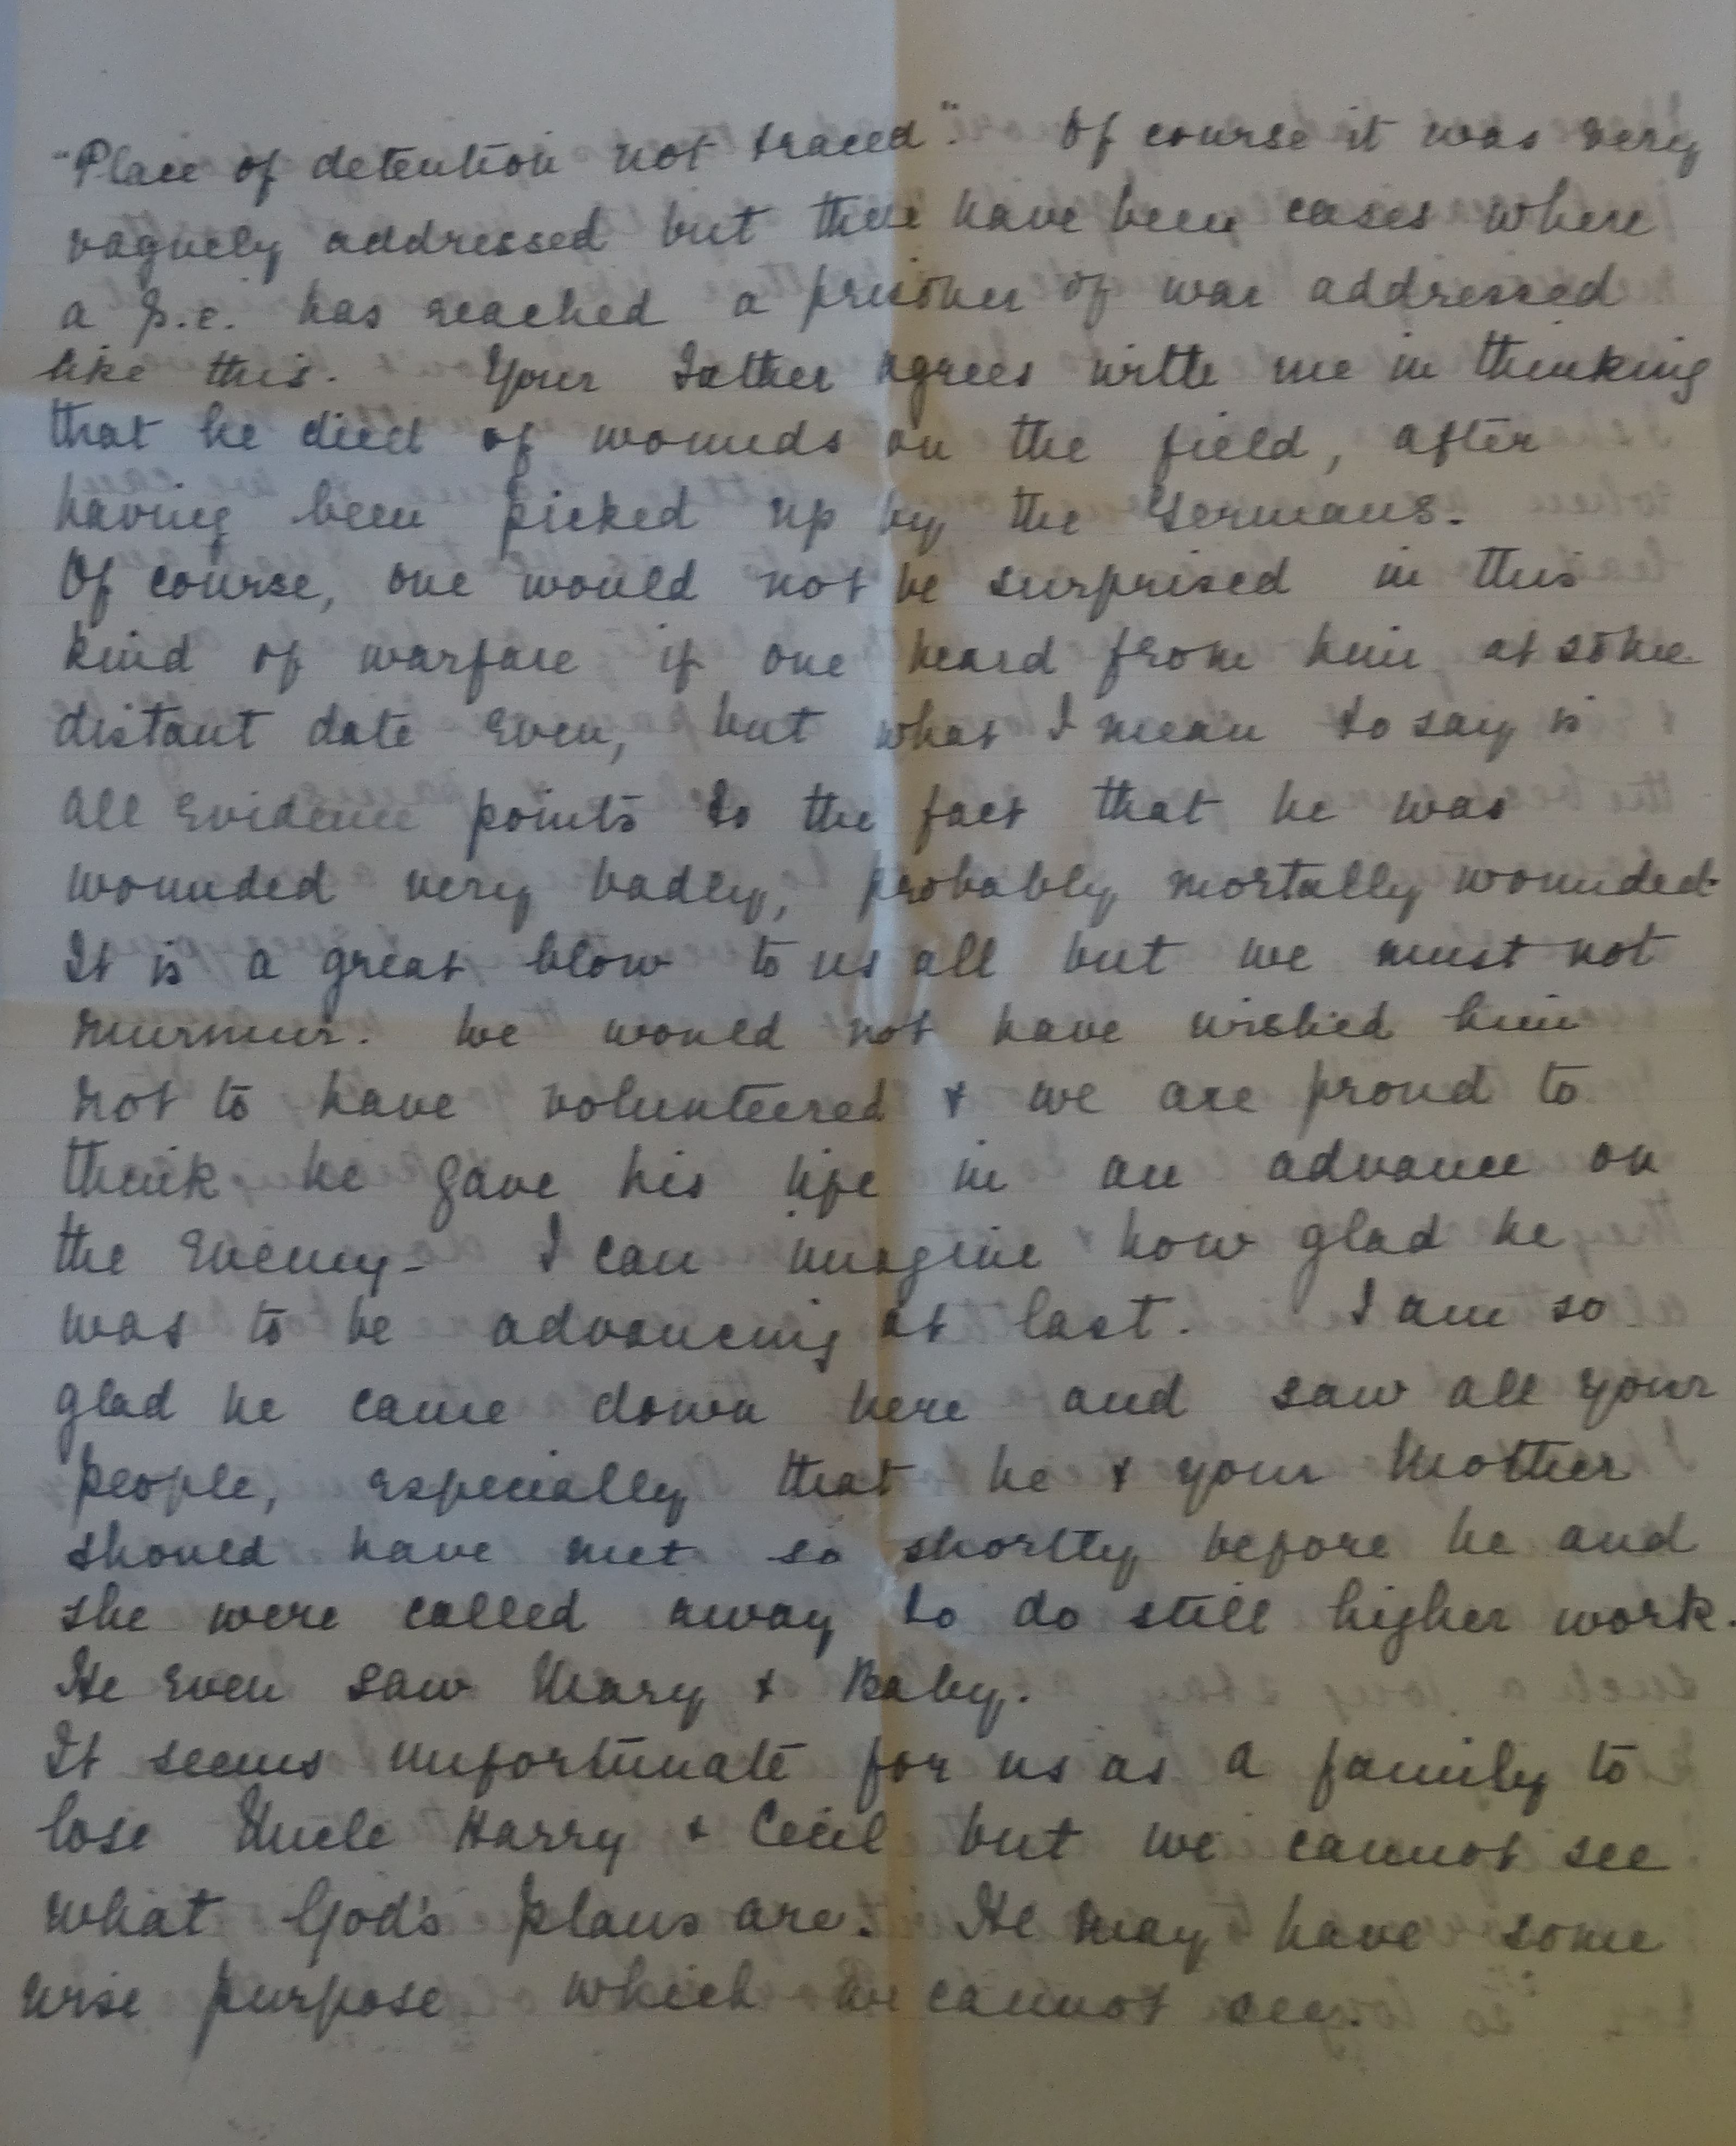 "Place of detention not traced". Of course it was very
vaguely addressed but there have been cases where
a p.c. has reached a prisoner of war addressed
like this. Your Father agrees with me in thinking
that he died of wounds on the field, after
having been picked up by the Germans.
Of course, one would not be surprised in this
kind of warfare if one heard from him, at some
distant date even, but what I mean to say is
all evidence points to the fact that he was
wounded very badly, probably mortally wounded.
It is a great blow to us all but we must not
murmur. We would not have wished him
not to have volunteered & we are proud to
think he gave his life in an advance on
the enemy- I can imagine how glad he
was to be advancing at last. I am so
glad he came down here and saw all your
people, especially that he & your Mother
should have met so shortly before he and
she were called away to do still higher work.
He even saw Mary & Baby.
It seems unfortunate for us as a family to
lose Uncle Harry & Cecil but we cannot see
what God's plans are. He may have some
wise purpose which we cannot see.